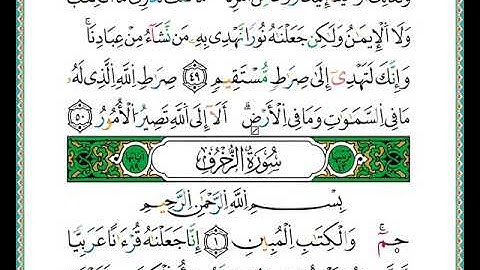 وَلَا ٱلْإِيمَـٰنُ وَلَـٰكِن جَعَلْنَـٰهُ نُورًا نَّهْدِى بِهِۦ مَن نَّشَآءُ مِنْ عِبَادِنَا ۚ
وَإِنَّكَ لَتَهْدِىٓ إِلَىٰ صِرَٰطٍ مُّسْتَقِيمٍ ٤٩ صِرَٰطِ ٱللَّهِ ٱلَّذِى لَهُۥ
مَا فِى ٱلسَّمَـٰوَٰتِ وَمَا فِى ٱلْأَرْضِ ۗ أَلَآ إِلَى ٱللَّهِ تَصِيرُ ٱلْأُمُورُ ٥٠
سُورَةُ ٱلزُّخْرُفِ
بِسْمِ ٱللَّهِ ٱلرَّحْمَـٰنِ ٱلرَّحِيمِ
حمٓ وَٱلْكِتَـٰبِ ٱلْمُبِينِ ١ إِنَّا جَعَلْنَـٰهُ قُرْءَٰنًا عَرَبِيًّا